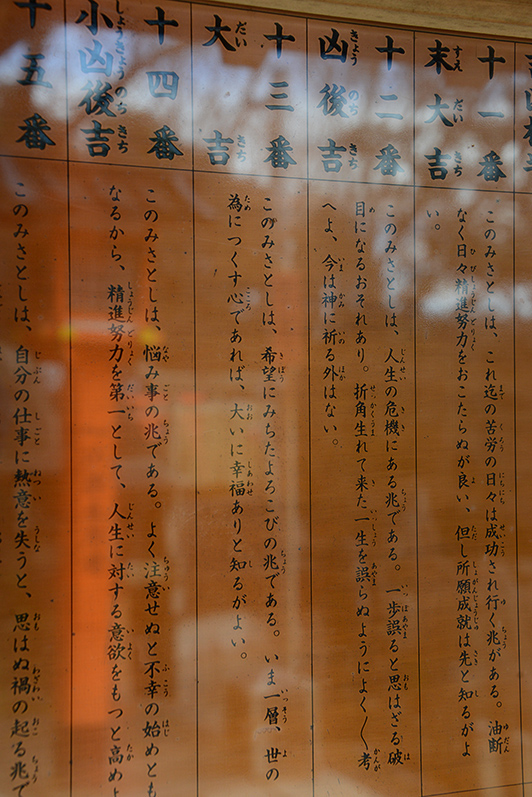 十一番
末大吉
このみさとしは、これ迄の苦労の日々は成功され行く兆がある。油断
なく日々精進努力をおこたらぬが良い、但し所願成就は先と知るがよ
い。
十二番
凶後吉
このみさとしは、人生の危機にある兆である。一歩誤ると思はざる破
目になるおそれあり。折角生れて来た一生を誤らぬようによく〳〵考
へよ、今は神に祈る外はない。
十三番
大吉
このみさとしは、希望にみちたよろこびの兆である。いま一層、世の
為につくす心であれば、大いに幸福ありと知るがよい。
十四番
小凶後吉
このみさとしは、悩み事の兆である。よく注意せぬと不幸の始めとも
なるから、精進努力を第一として、人生に対する意欲をもつと高めよ
十五番
このみさとしは、自分の仕事に熱意を失うと、思はぬ禍の起る兆で